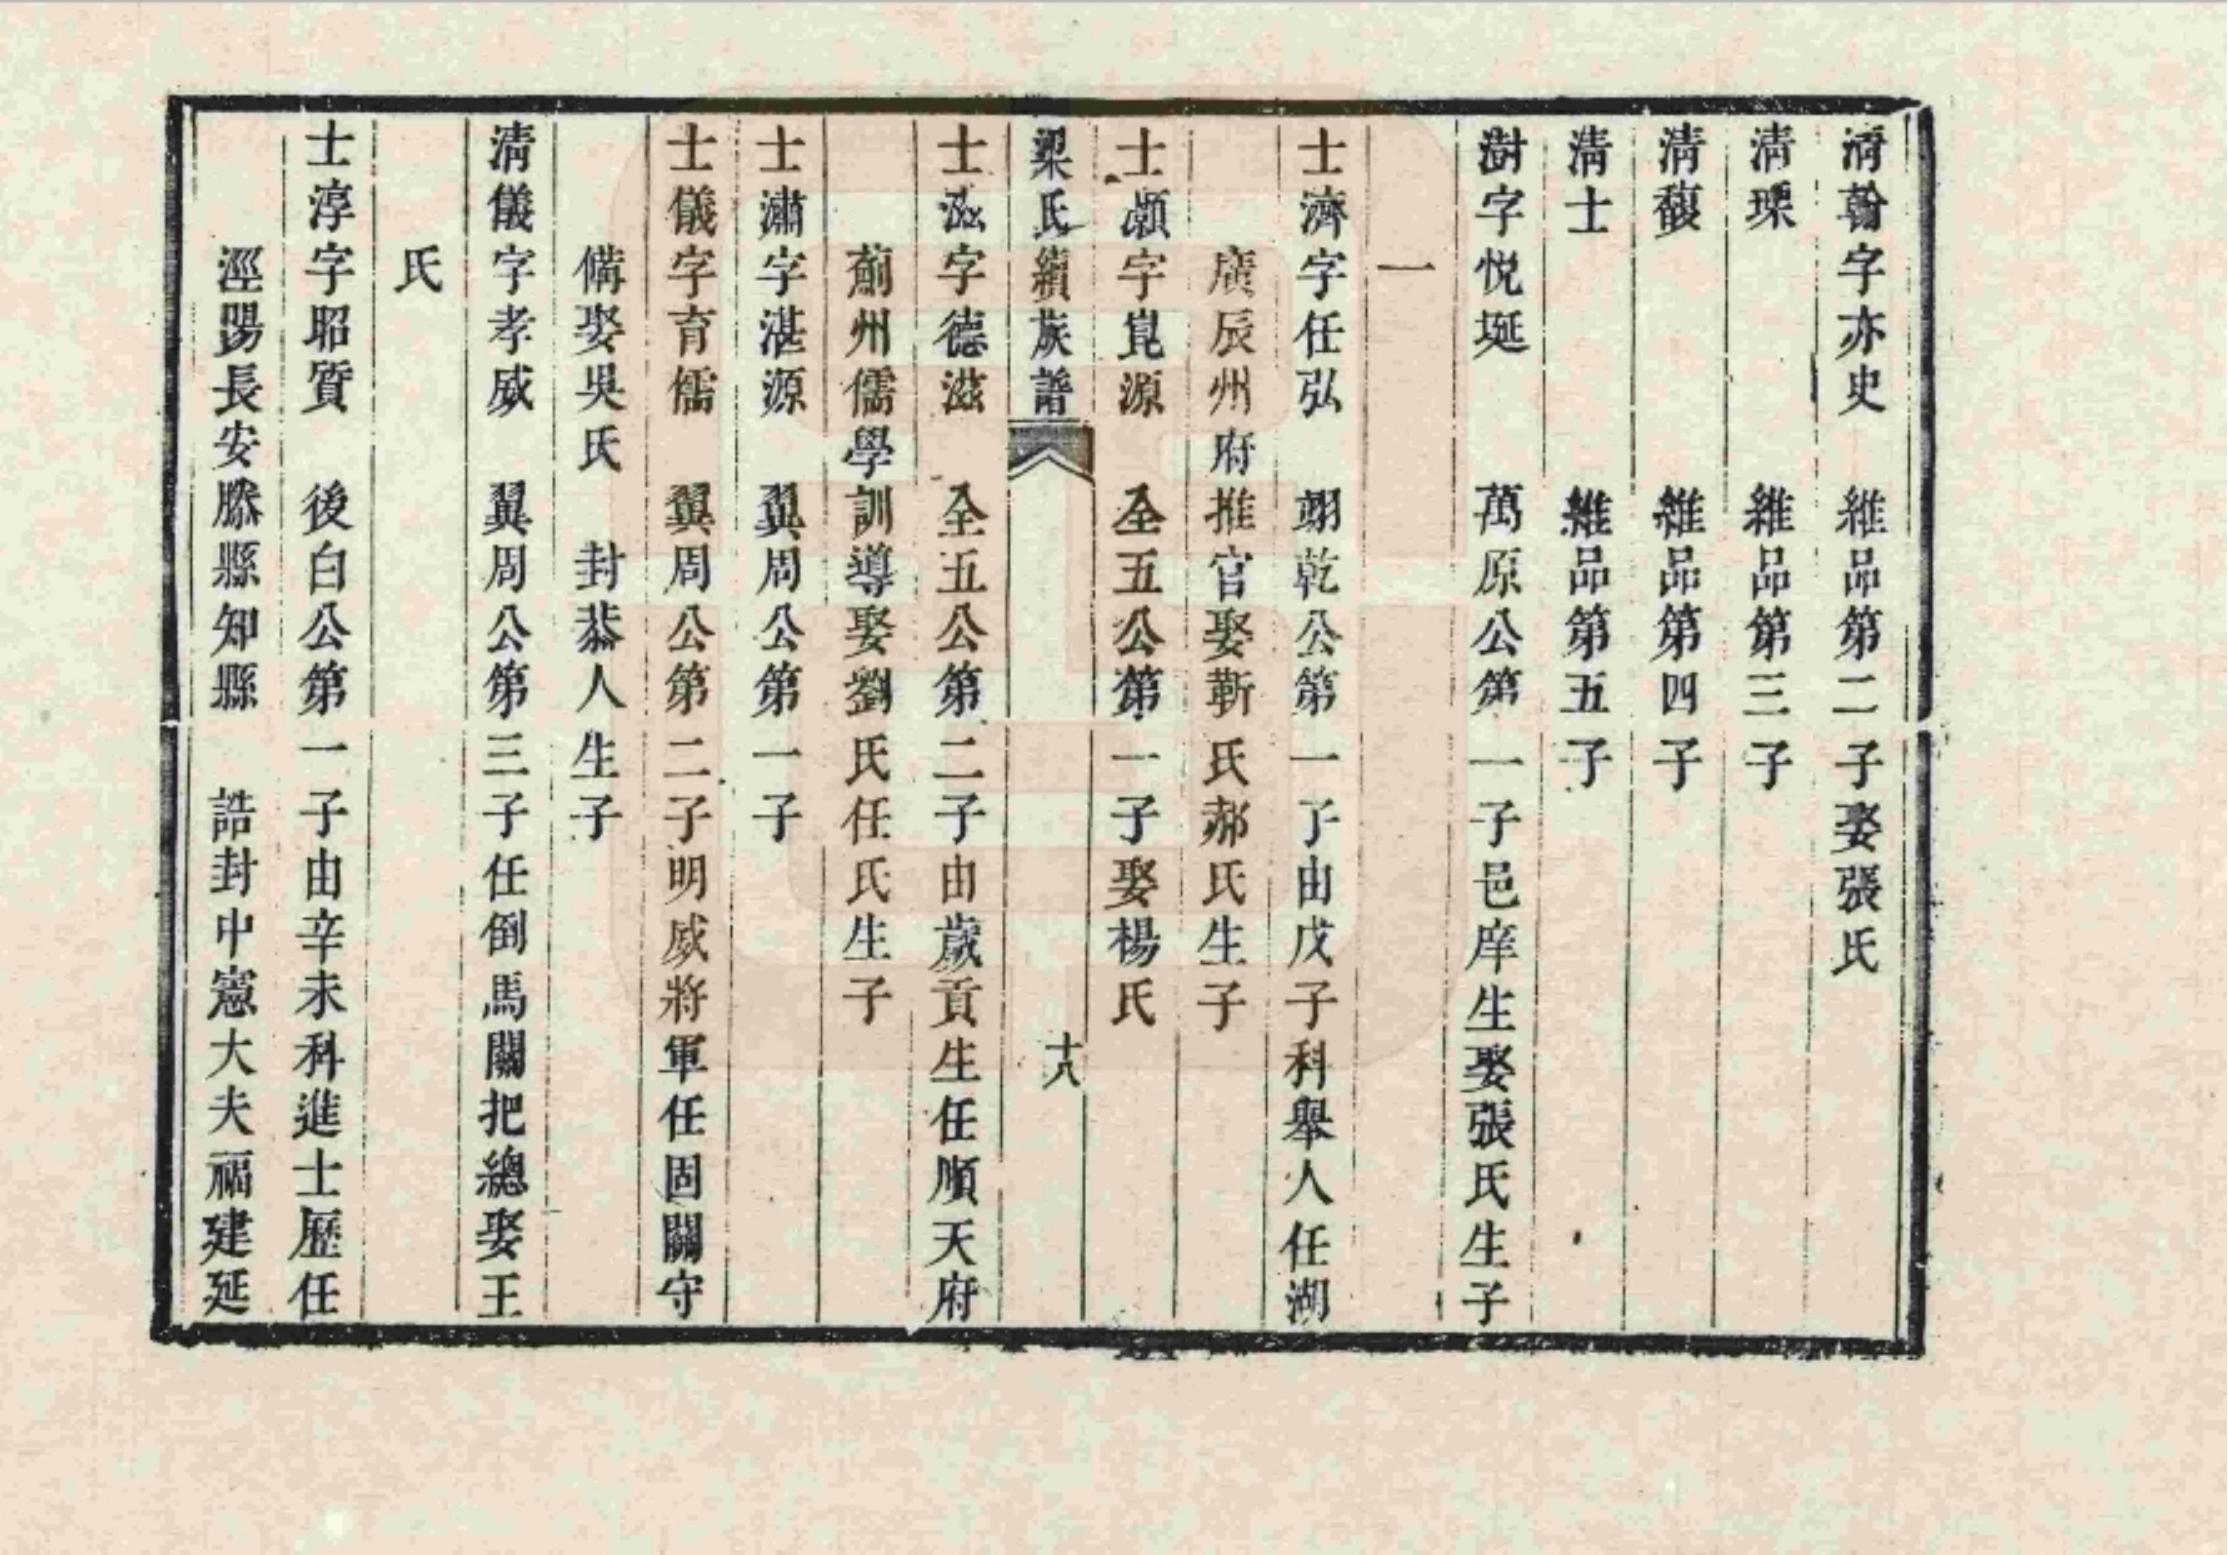 清翰字亦史　維品第二子娶張氏
清瑮　維品第三子
清馥　維品第四子
清士　維品第五子
澍字悦埏　萬原公第一子邑庠生娶張氏生子
一
士濟字任弘　翊乾公第一子由戊子科舉人任湖
廣辰州府推官娶靳氏郝氏生子
士灝字崑源　仝五公第一子娶楊氏
梁氏續族譜　十八
士滋字德滋　仝五公第二子由歲貢生任順天府
薊州儒學訓導娶劉氏任氏生子
士潚字湛源　翼周公第一子
士儀字育儒　翼周公第二子明威將軍任固關守
備娶吳氏　封恭人生子
清儀字孝威　翼周公第三子任倒馬關把總娶王
氏
士淳字昭質　後白公第一子由辛未科進士歷任
涇陽長安滕縣知縣　誥封中憲大夫福建延